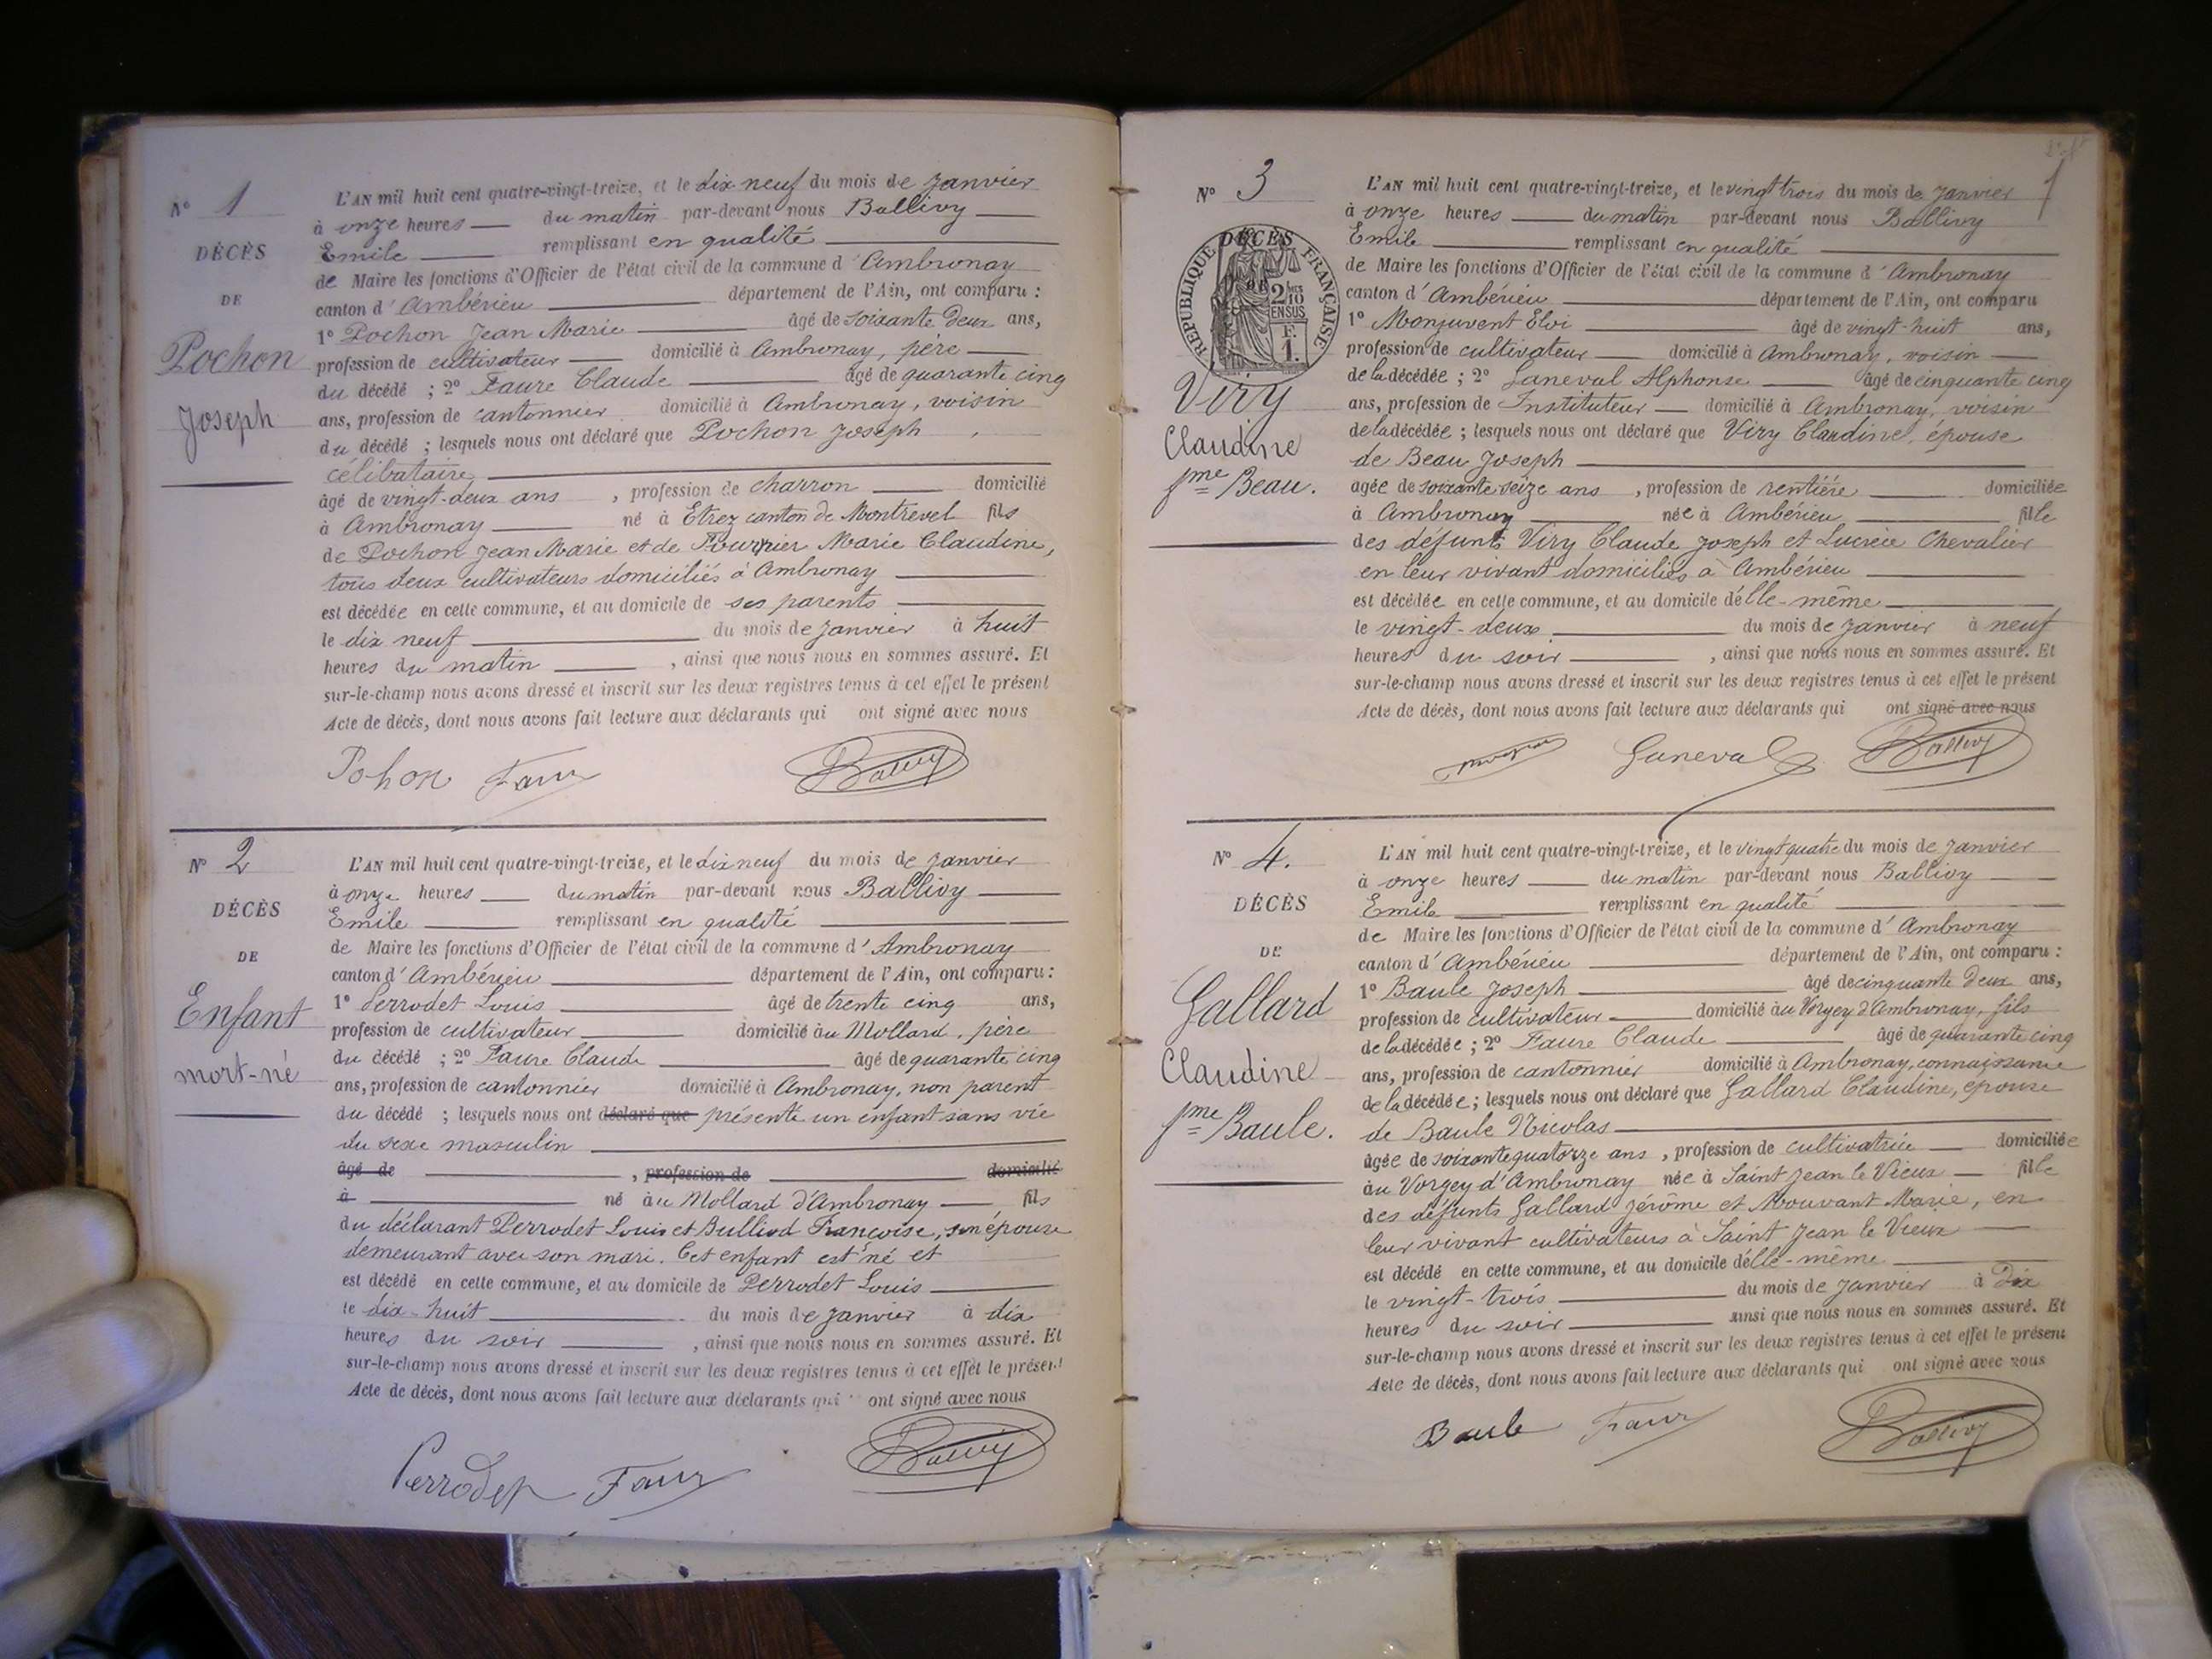 N° 1
DÉCÈS
DE
Pochon
Joseph
L'AN mil huit cent quatre-vingt-treize, et le dix neuf du mois de Janvier
à onze heures du matin par-devant nous Ballivy
Emile remplissant en qualité
de Maire les fonctions d'Officier de l'état civil de la commune d'Ambronay
canton d'Ambérieu département de l'Ain, ont comparu :
1° Pochon Jean Marie âgé de soixante deux ans,
profession de cultivateur domicilié à Ambronay, père
du décédé ; 2° Faure Claude âgé de quarante cinq
ans, profession de cantonnier domicilié à Ambronay, voisin
du décédé ; lesquels nous ont déclaré que Pochon Joseph
célibataire
âgé de vingt-deux ans, profession de charron domicilié
à Ambronay né à Etrez canton de Montrevel fils
de Pochon Jean Marie et de Fourrier Marie Claudine,
tous deux cultivateurs domiciliés à Ambronay
est décédée en cette commune, et au domicile de ses parents
le dix neuf du mois de Janvier à huit
heures du matin, ainsi que nous nous en sommes assuré. Et
sur-le-champ nous avons dressé et inscrit sur les deux registres tenus à cet effet le présent
Acte de décès, dont nous avons fait lecture aux déclarants qui ont signé avec nous
Pohon Faur Ballivy
N° 2
DÉCÈS
DE
Enfant
mort-né
L'AN mil huit cent quatre-vingt-treize, et le dix neuf du mois de Janvier
à onze heures du matin par-devant nous Ballivy
Emile remplissant en qualité
de Maire les fonctions d'Officier de l'état civil de la commune d'Ambronay
canton d'Ambérieu département de l'Ain, ont comparu :
1° Perrodet Louis âgé de trente cinq ans,
profession de cultivateur domicilié au Mollard, père
du décédé ; 2° Faure Claude âgé de quarante cinq
ans, profession de cantonnier domicilié à Ambronay, non parent
du décédé ; lesquels nous ont déclaré que présenté un enfant sans vie
du sexe masculin
âgé de , profession de domicilié
à né au Mollard d'Ambronay fils
du déclarant Perrodet Louis et Bulliod Françoise, son épouse
demeurant avec son mari. Cet enfant est né et
est décédé en cette commune, et au domicile de Perrodet Louis
le dix-huit du mois de Janvier à dix
heures du soir, ainsi que nous nous en sommes assuré. Et
sur-le-champ nous avons dressé et inscrit sur les deux registres tenus à cet effet le présent
Acte de décès, dont nous avons fait lecture aux déclarants qui ont signé avec nous
Perrodet Faur Ballivy
1
N° 3
DÉCÈS
DE
RÉPUBLIQUE FRANÇAISE
2/10 EN SUS
F. 1.
Viry
Claudine
fme Beau.
L'AN mil huit cent quatre-vingt-treize, et le vingt trois du mois de Janvier
à onze heures du matin par-devant nous Ballivy
Emile remplissant en qualité
de Maire les fonctions d'Officier de l'état civil de la commune d'Ambronay
canton d'Ambérieu département de l'Ain, ont comparu
1° Monjuvent Eloi âgé de vingt-huit ans,
profession de cultivateur domicilié à Ambronay, voisin
de la décédée ; 2° Ganeval Alphonse âgé de cinquante cinq
ans, profession de Instituteur domicilié à Ambronay, voisin
de la décédée ; lesquels nous ont déclaré que Viry Claudine, épouse
de Beau Joseph
âgée de soixante seize ans, profession de rentière domiciliée
à Ambronay née à Ambérieu fille
des défunts Viry Claude Joseph et Lucrèce Chevalier
en leur vivant domiciliés à Ambérieu
est décédée en cette commune, et au domicile d'elle-même
le vingt-deux du mois de Janvier à neuf
heures du soir, ainsi que nous nous en sommes assuré. Et
sur-le-champ nous avons dressé et inscrit sur les deux registres tenus à cet effet le présent
Acte de décès, dont nous avons fait lecture aux déclarants qui ont signé avec nous
Ganeval Ballivy
N° 4.
DÉCÈS
DE
Gallard
Claudine
fme Baule.
L'AN mil huit cent quatre-vingt-treize, et le vingt quatre du mois de Janvier
à onze heures du matin par-devant nous Ballivy
Emile remplissant en qualité
de Maire les fonctions d'Officier de l'état civil de la commune d'Ambronay
canton d'Ambérieu département de l'Ain, ont comparu :
1° Baule Joseph âgé de cinquante deux ans,
profession de cultivateur domicilié au Vorgey d'Ambronay, fils
de la décédée ; 2° Faure Claude âgé de quarante cinq
ans, profession de cantonnier domicilié à Ambronay, connaissance
de la décédée ; lesquels nous ont déclaré que Gallard Claudine, épouse
de Baule Nicolas
âgée de soixante quatorze ans, profession de cultivatrice domiciliée
au Vorgey d'Ambronay née à Saint Jean le Vieux fille
des défunts Gallard Jérôme et Mouvant Marie, en
leur vivant cultivateurs à Saint Jean le Vieux
est décédé en cette commune, et au domicile d'elle-même
le vingt-trois du mois de Janvier à dix
heures du soir ainsi que nous nous en sommes assuré. Et
sur-le-champ nous avons dressé et inscrit sur les deux registres tenus à cet effet le présent
Acte de décès, dont nous avons fait lecture aux déclarants qui ont signé avec nous
Baule Faur Ballivy